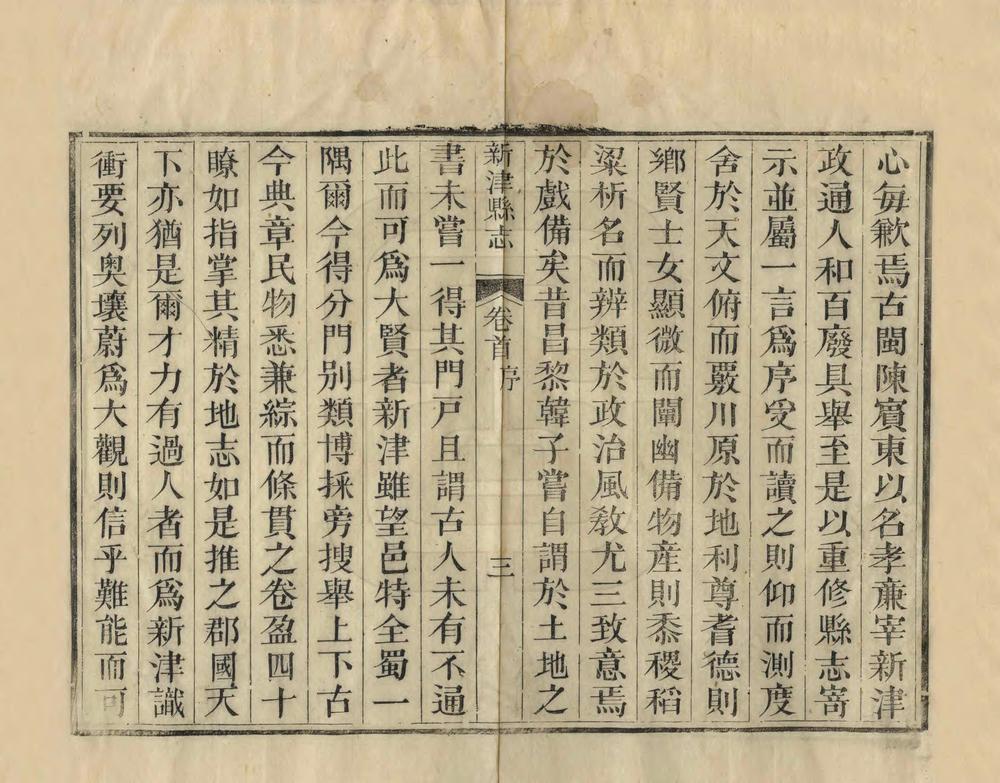 心每歉焉古閩陳賓東以名孝亷宰新津
政通人和百廢具舉至是以重修縣志寄
示並屬一言爲序受而讀之則仰而測度
舍於天文俯而覈川原於地利尊耆德則
鄉賢士女顯微而闡幽備物產則黍稷稻
粱析名而辨類於政治風敎尤三致意焉
於戲備矣昔昌黎韓子嘗自謂於土地之
新津縣志 卷首 序 三
書未嘗一得其門戸且謂古人未有不通
此而可爲大賢者新津雖望邑特全蜀一
隅爾今得分門別類博採旁搜舉上下古
今典章民物悉兼綜而條貫之卷盈四十
瞭如指掌其精於地志如是推之郡國天
下亦猶是爾才力有過人者而爲新津識
衝要列奥壤蔚爲大觀則信乎難能而可